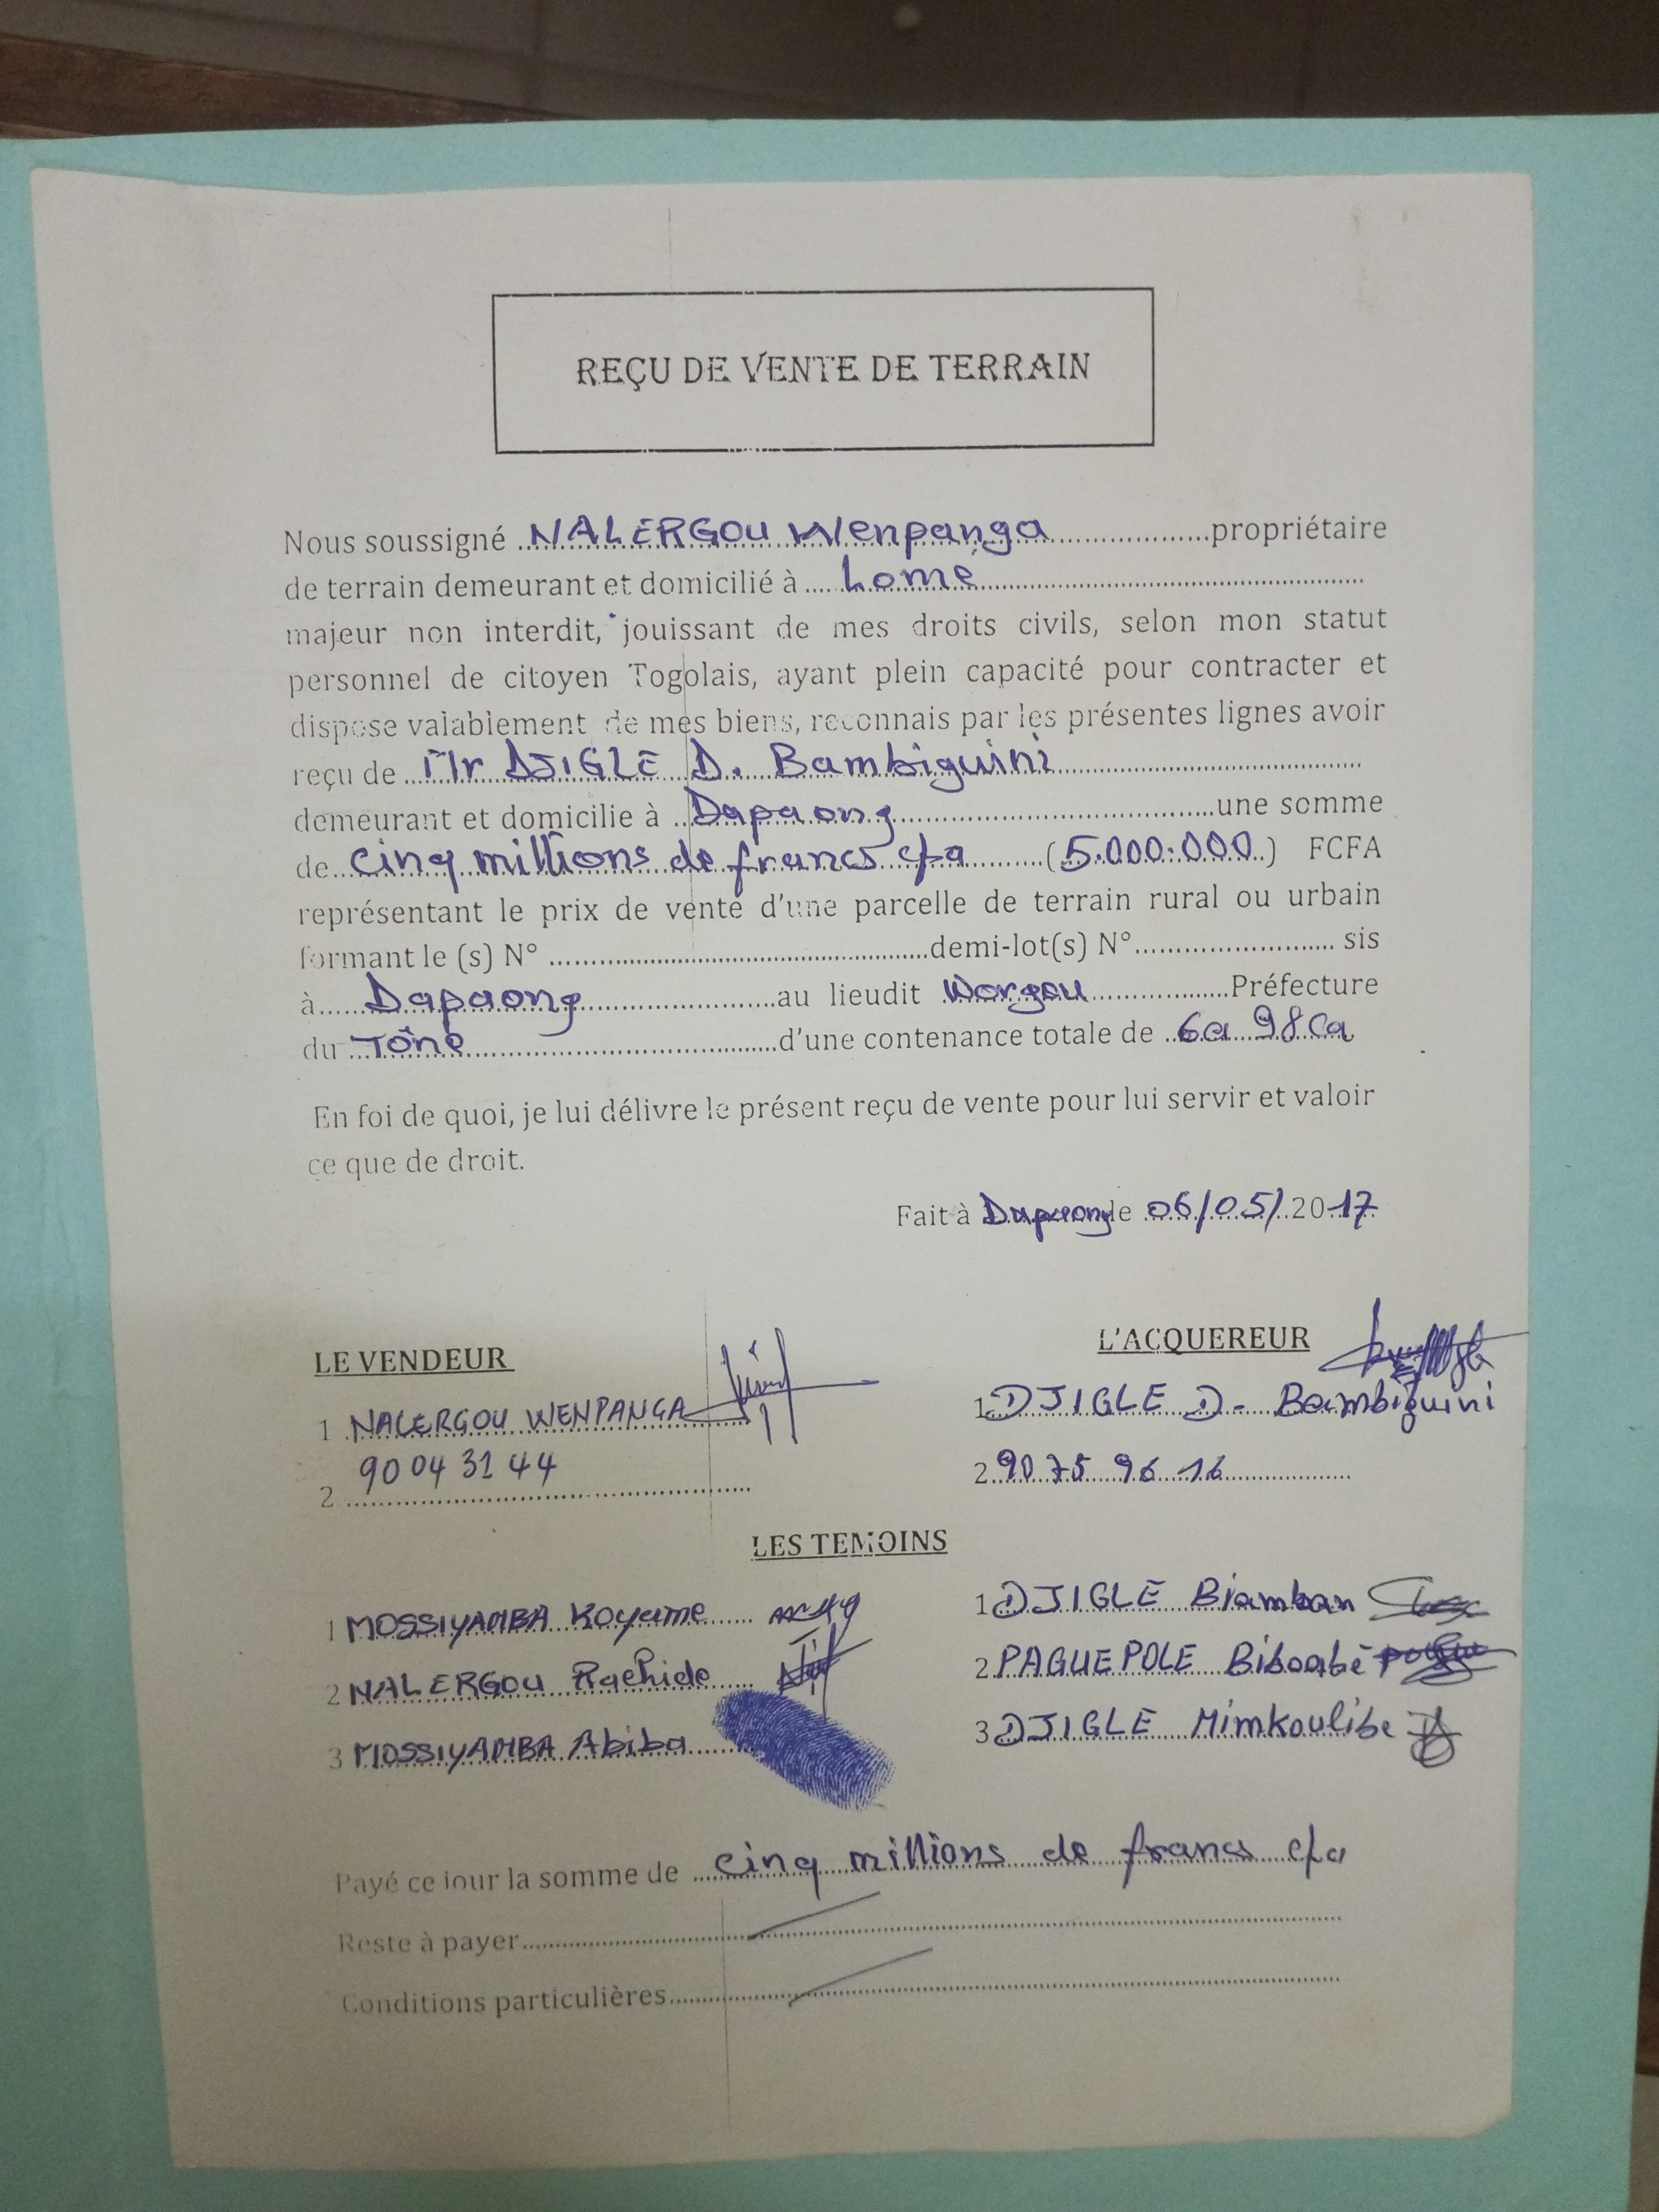 REÇU DE VENTE DE TERRAIN
Nous soussigné NALERGOU Wenpanga propriétaire
de terrain demeurant et domicilié à Lomé
majeur non interdit, jouissant de mes droits civils, selon mon statut
personnel de citoyen Togolais, ayant plein capacité pour contracter et
dispose valablement de mes biens, reconnais par les présentes lignes avoir
reçu de Mr DJIGLE D. Bambiguini
demeurant et domicilie à Dapaong une somme
de cinq millions de francs cfa (5.000.000) FCFA
représentant le prix de vente d'une parcelle de terrain rural ou urbain
formant le (s) N° demi-lot(s) N° sis
à Dapaong au lieudit Worgou Préfecture
du Tône d'une contenance totale de 6a 98ca
En foi de quoi, je lui délivre le présent reçu de vente pour lui servir et valoir
ce que de droit.
Fait à Dapaong le 06/05/2017
LE VENDEUR L'ACQUEREUR
1 NALERGOU WENPANGA 1 DJIGLE D- Bambiguini
2 90 04 31 44 2 90 75 96 16
LES TEMOINS
1 MOSSIYAMBA Koyame 1 DJIGLE Biamban
2 NALERGOU Rachide 2 PAGUEPOLE Biboabé
3 MOSSIYAMBA Abiba 3 DJIGLE Mimkoulibe
Payé ce jour la somme de cinq millions de francs cfa
Reste à payer
Conditions particulières